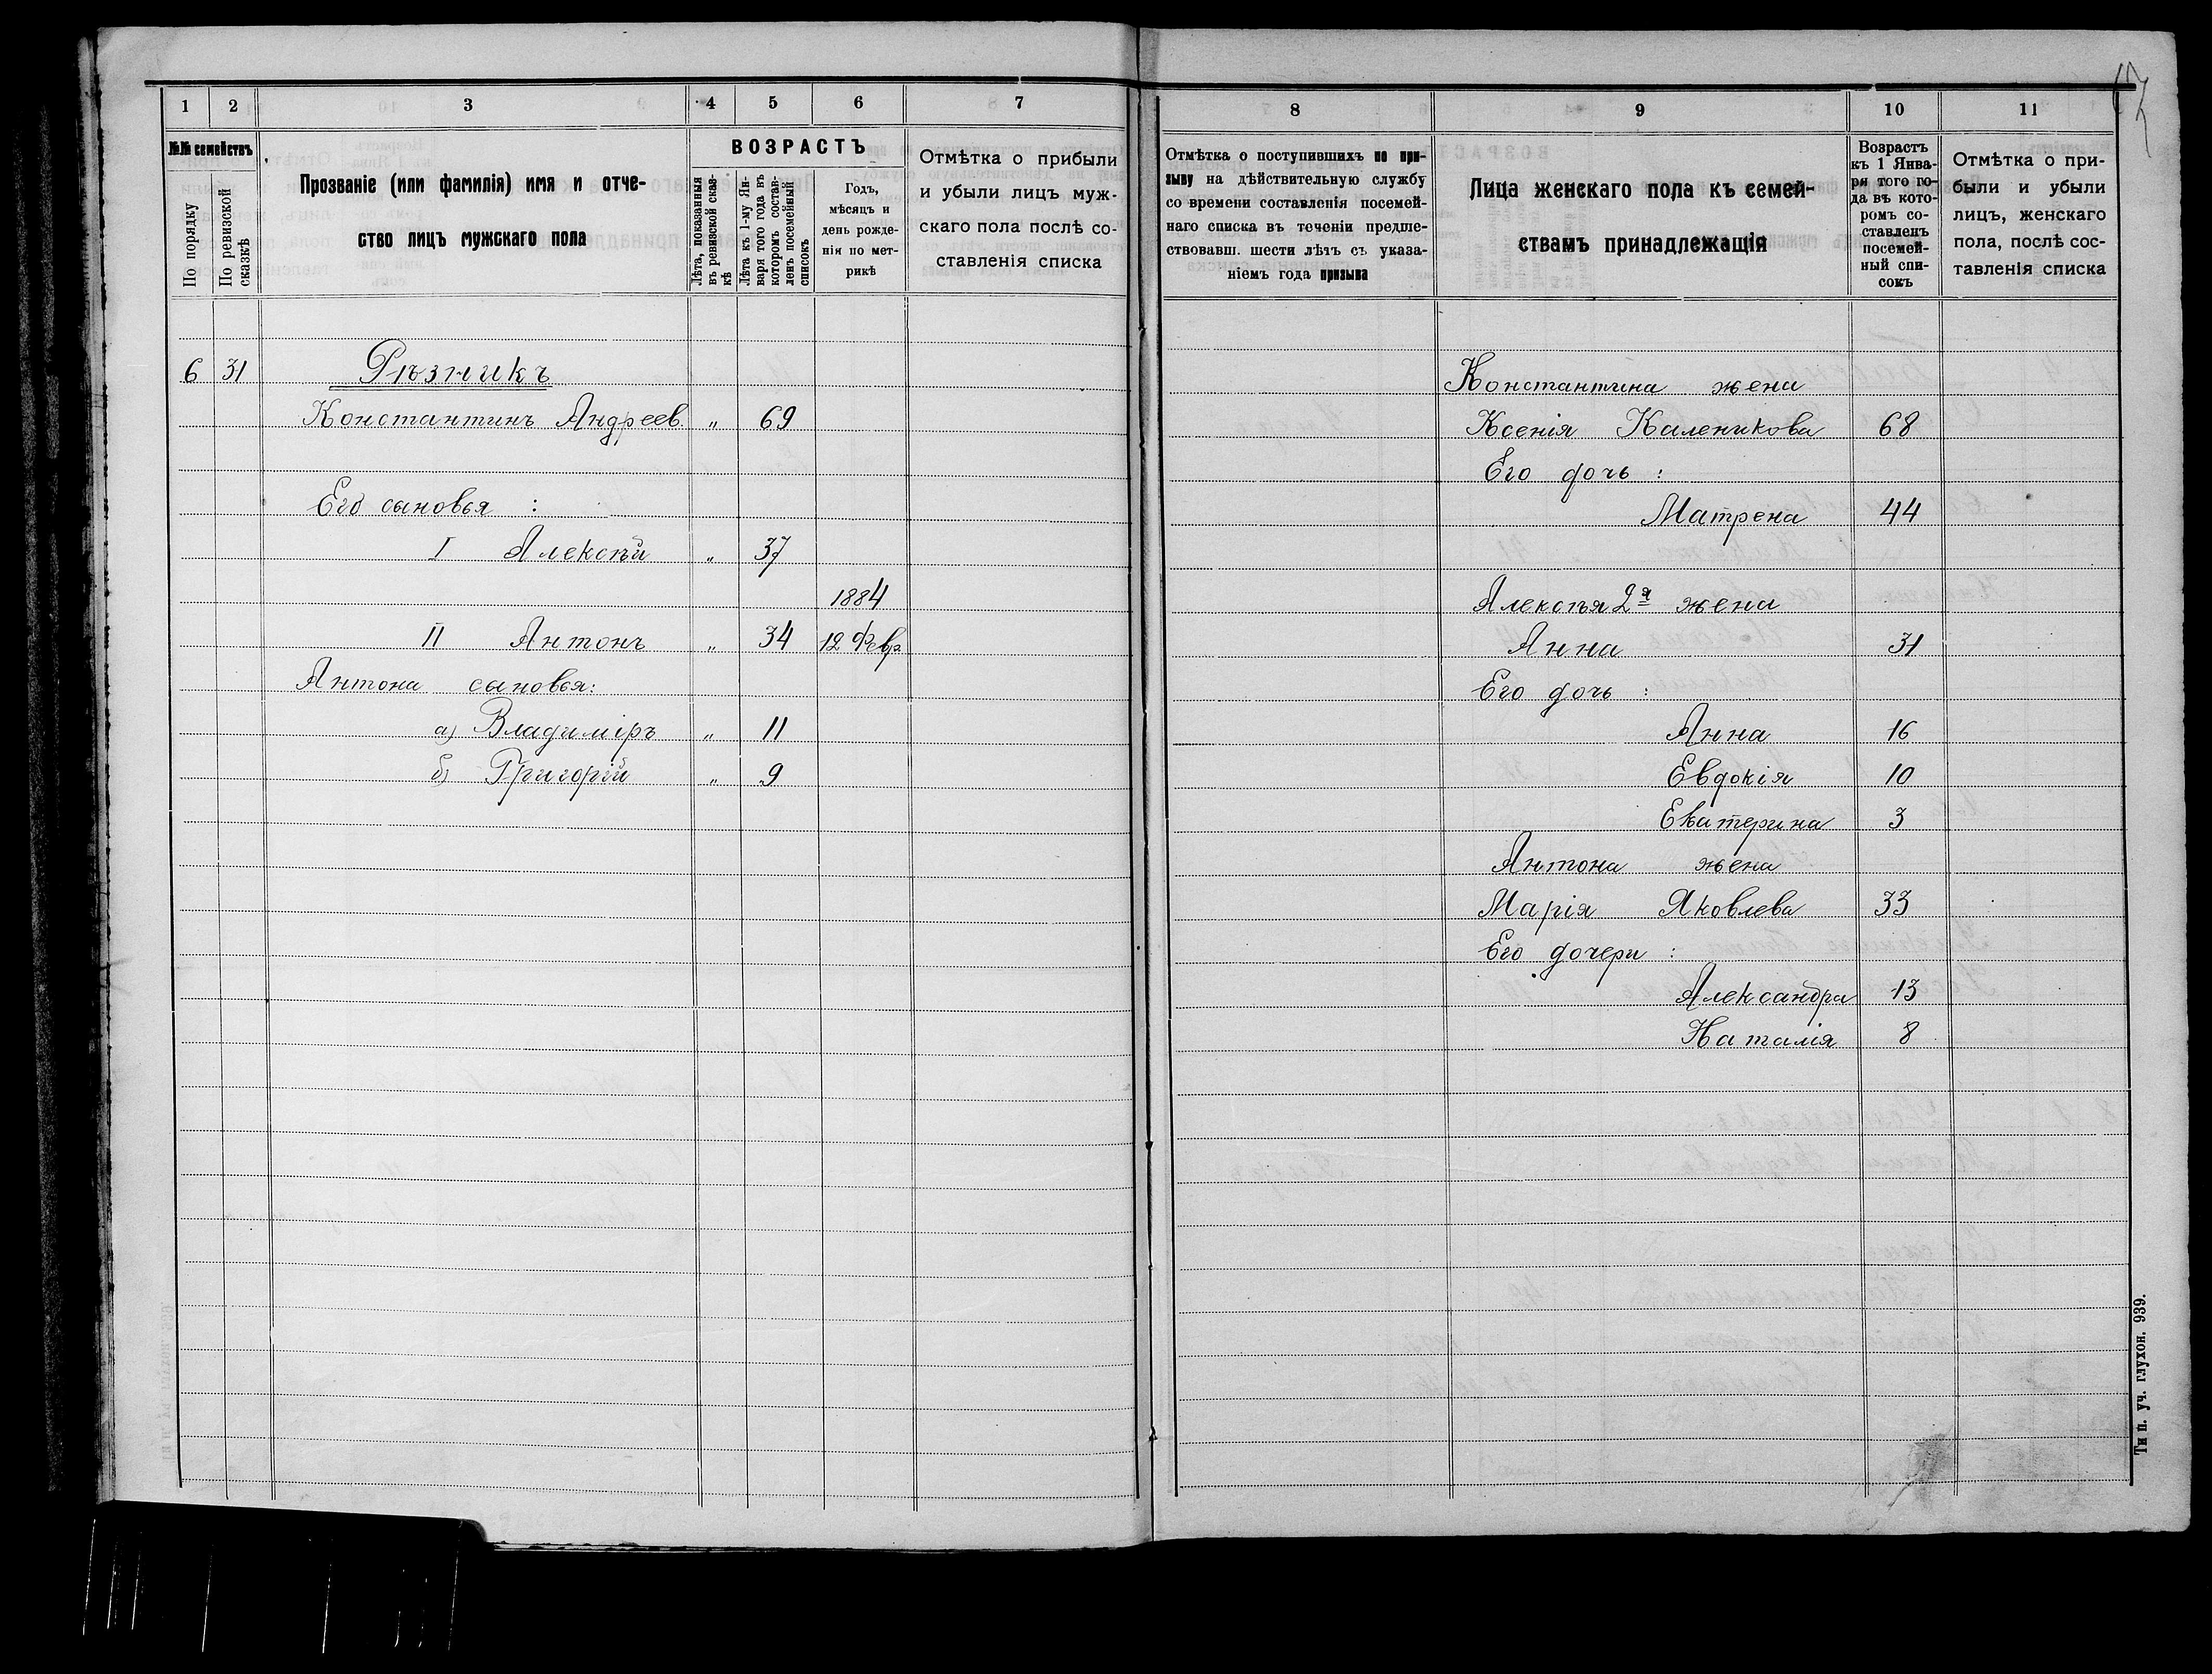 17
1 2 3 4 5 6 7
№№ семействъ
По порядку
По ревизской сказкѣ
Прозваніе (или фамилія) имя и отче-
ство лицъ мужскаго пола
ВОЗРАСТЪ
Лѣта, показанныя
въ ревизской сказ-
кѣ
Лѣта къ 1-му Ян-
варя того года въ
которомъ состав-
ленъ посемейный
списокъ
Годъ,
мѣсяцъ и
день рожде-
нія по мет-
рикѣ
Отмѣтка о прибыли
и убыли лицъ муж-
скаго пола послѣ со-
ставленія списка
6 31 Рѣзникъ
Константинъ Андреев. „ 69
Его сыновья :
I Алексѣй „ 37
1884
II Антонъ „ 34 12 Февр
Антона сыновья:
а) Владиміръ „ 11
б) Григорій „ 9
8 9 10 11
Отмѣтка о поступившихъ по при-
зыву на дѣйствительную службу
со времени составленія посемей-
наго списка въ теченіи предше-
ствовавш. шести лѣтъ съ указа-
ніемъ года призыва
Лица женскаго пола къ семей-
ствамъ принадлежащія
Возрастъ
къ 1 Янва-
ря того го-
да въ кото-
ромъ со-
ставленъ
посемей-
ный спи-
сокъ
Отмѣтка о при-
были и убыли
лицъ, женскаго
пола, послѣ сос-
тавленія списка
Константина жена
Ксенія Каленикова 68
Его дочь :
Матрена 44
Алексѣя 2я жена
Анна 31
Его дочь :
Анна 16
Евдокія 10
Екатерина 3
Антона жена
Марія Яковлева 33
Его дочери :
Александра 13
Наталія 8
Тип. уч. глухон. 939.